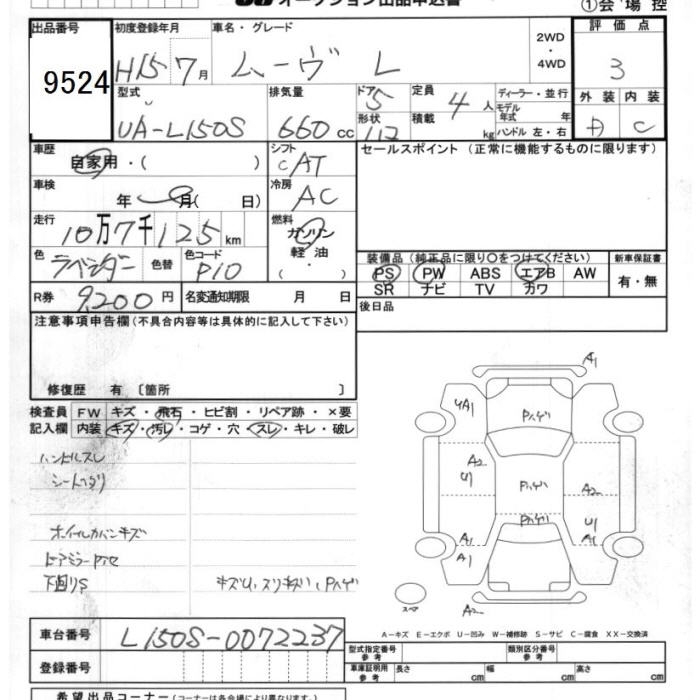 オークション出品申込書
①会場控
出品番号
9524
初度登録年月
H15 7月
車名・グレード
ムーヴ L
2WD・4WD
評価点
3
型式
UA-L150S
排気量
660cc
ドア
5
形状
定員
4人
積載
kg
ディーラー・並行
モデル年式 年
ハンドル 左・右
外装
内装
C
車歴
自家用・( )
シフト
CAT
セールスポイント(正常に機能するものに限ります)
車検
年 月( 日)
冷房
AC
走行
10万7千125km
燃料
ガソリン
軽油
・( )
色
ラベンダー
色替
色コード
P10
装備品(純正品に限り〇をつけてください)
PS PW ABS エアB AW
SR ナビ TV カワ
新車保証書
有・無
R券
9,200円
名変通知期限 月 日
後日品
注意事項申告欄(不具合内容等は具体的に記入して下さい)
修復歴 有〔箇所 〕
検査員記入欄
FW キズ・飛石・ヒビ割・リペア跡・×要
内装 キズ・汚レ・コゲ・穴・スレ・キレ・破レ
ハンドルスレ
ホイルカバーキズ
下廻りS
A1
UA1
Pハゲ
A2
U1
Pハゲ
A2
Pハゲ
U1
A1
A1
A1
スペア
A2
A-キズ E-エクボ U-凹み W-補修跡 S-サビ C-腐食 XX-交換済
車台番号
L150S-0072237
登録番号
型式指定番号 参考
類別区分番号 参考
車庫証明用 参考
長さ cm
幅 cm
高さ cm
希望出品コーナー(コーナーは各会場により異なります)